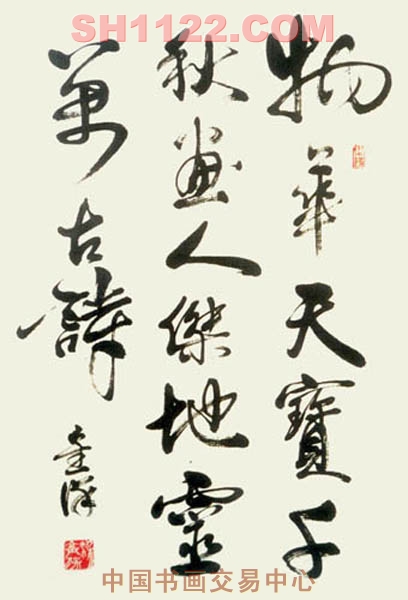 SH1122.COM
物華天寶千
秋畫人傑地靈
萬古詩
中国书画交易中心